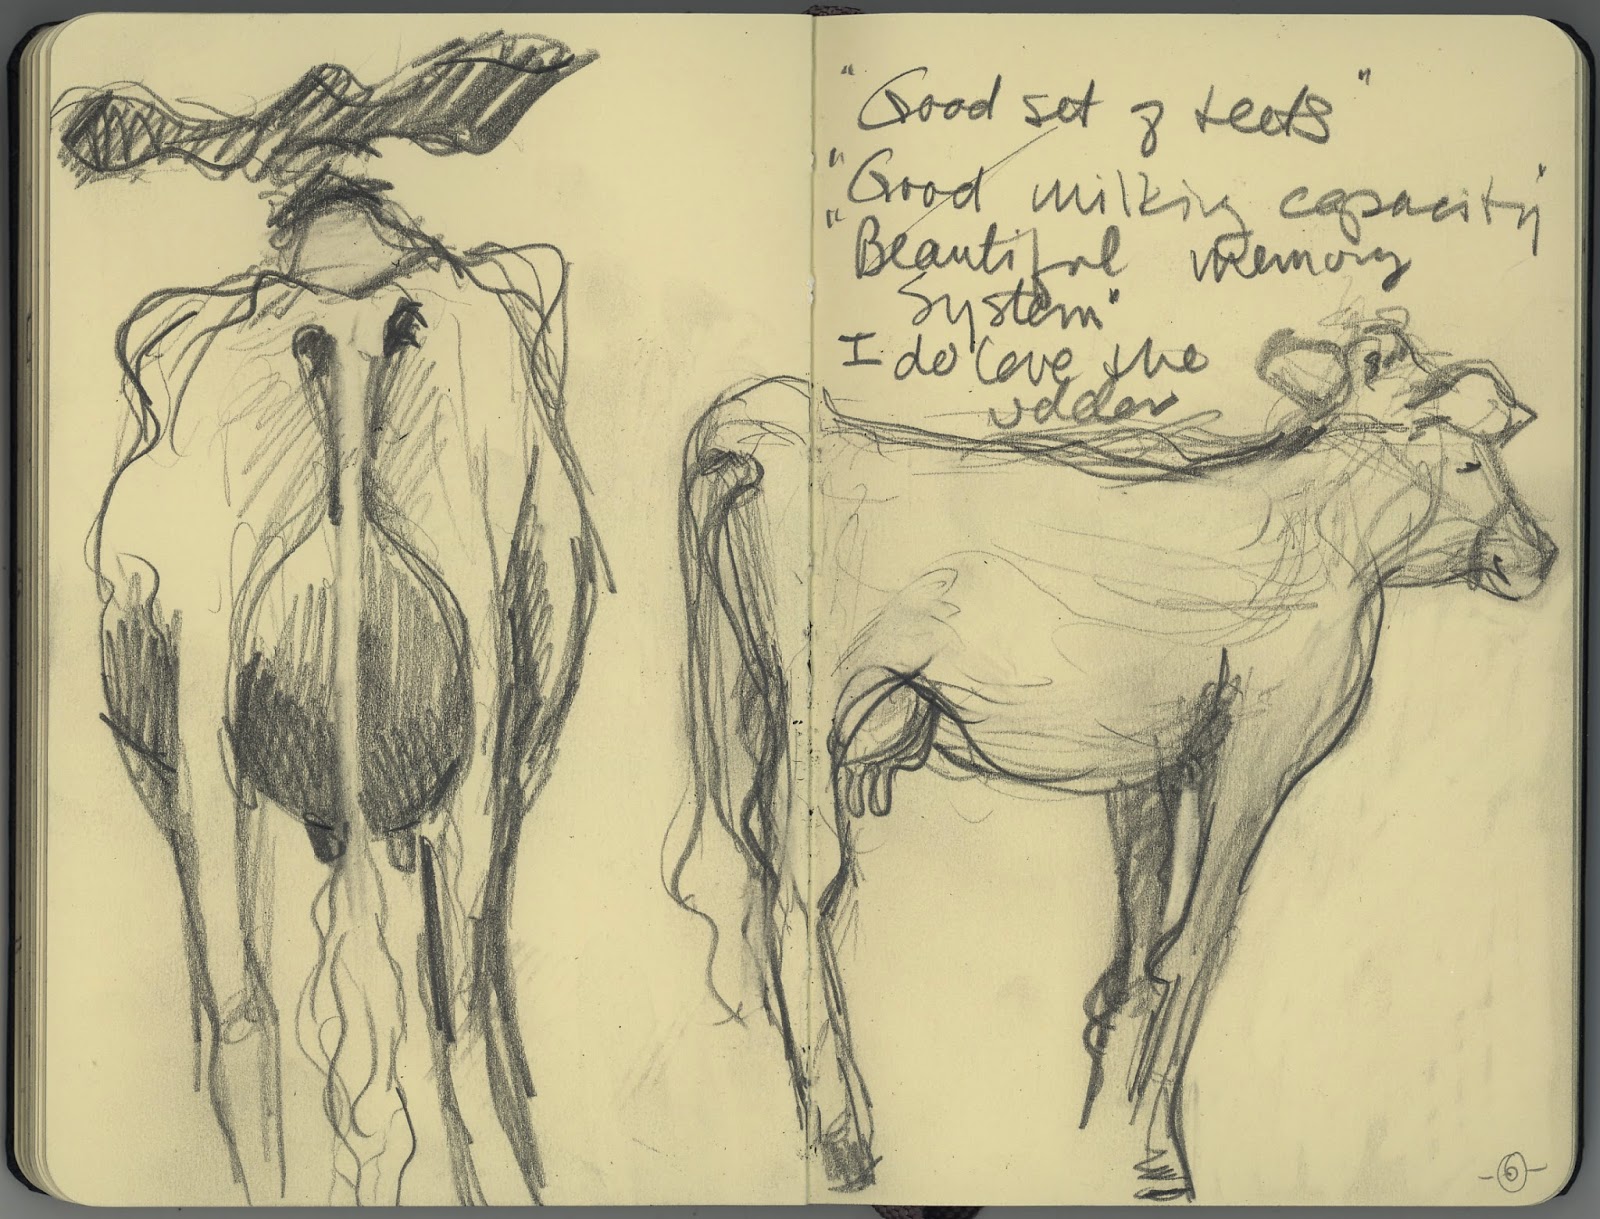 "Good set of teets"
"Good milking capacity"
"Beautiful memory
System"
I do love the
udder
-6-